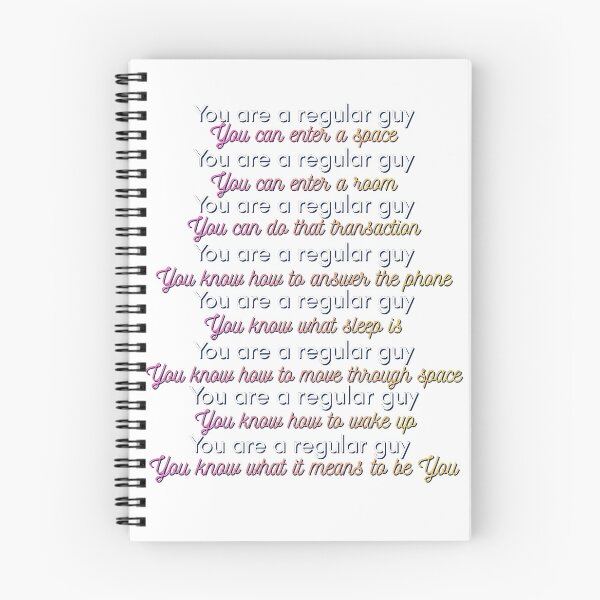 You are a regular guy
You can enter a space
You are a regular guy
You can enter a room
You are a regular guy
You can do that transaction
You are a regular guy
You know how to answer the phone
You are a regular guy
You know what sleep is
You are a regular guy
You know how to move through space
You are a regular guy
You know how to wake up
You are a regular guy
You know what it means to be You